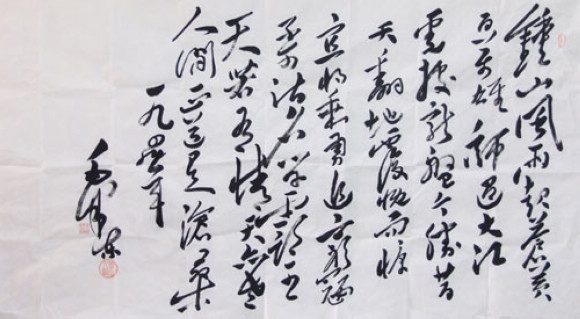 鍾山風雨起蒼黄
百万雄師过大江
虎踞龍盤今勝昔
天翻地覆慨而慷
宜将剩勇追窮寇
不可沽名学霸王
天若有情天亦老
人间正道是滄桑
一九年
毛泽东